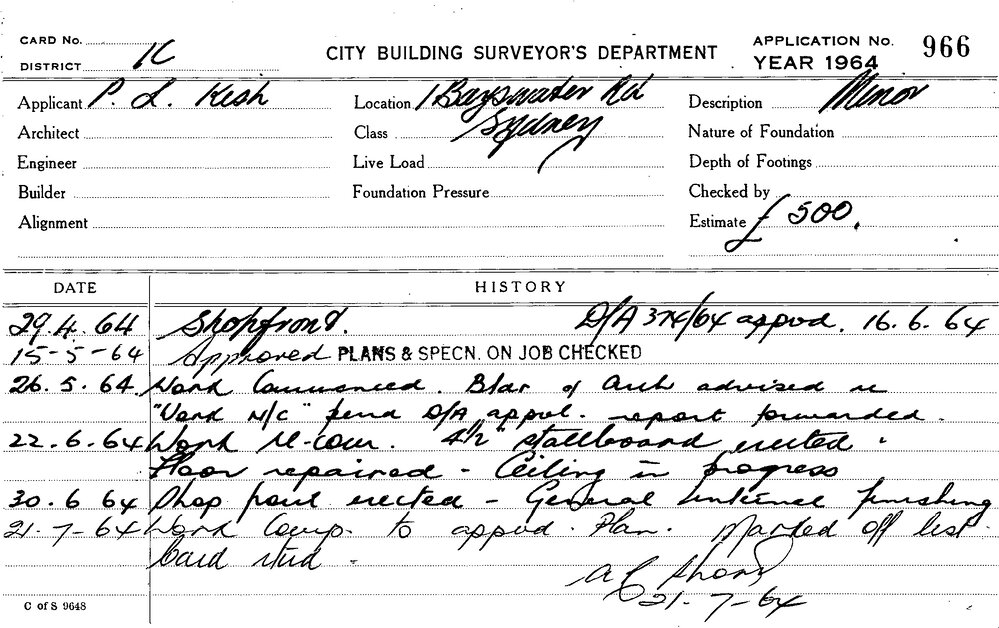 CARD No.
DISTRICT K
CITY BUILDING SURVEYOR'S DEPARTMENT
APPLICATION No. 966
YEAR 1964
Applicant P. L. Kesh
Location 1 Bayswater Rd
Description Minor
Architect
Class Sydney
Nature of Foundation
Engineer
Live Load
Depth of Footings
Builder
Foundation Pressure
Checked by
Alignment
Estimate £ 500.
DATE HISTORY
29.4.64 Shopfront. D/A 374/64 appvd. 16.6.64
15-5-64 Approved PLANS & SPECN. ON JOB CHECKED
26.5.64 Work Commenced. Bldr & Arch advised re
"Work N/C" pend D/A appvl. report forwarded.
22.6.64 Work re-com. 4½" stallboard erected.
Floor repaired - Ceiling in progress
30.6 64 Shop front erected - General internal finishing
21-7-64 Work Comp. to appvd. Plan. Marked off list
Card
21-7-64
C of S 9648